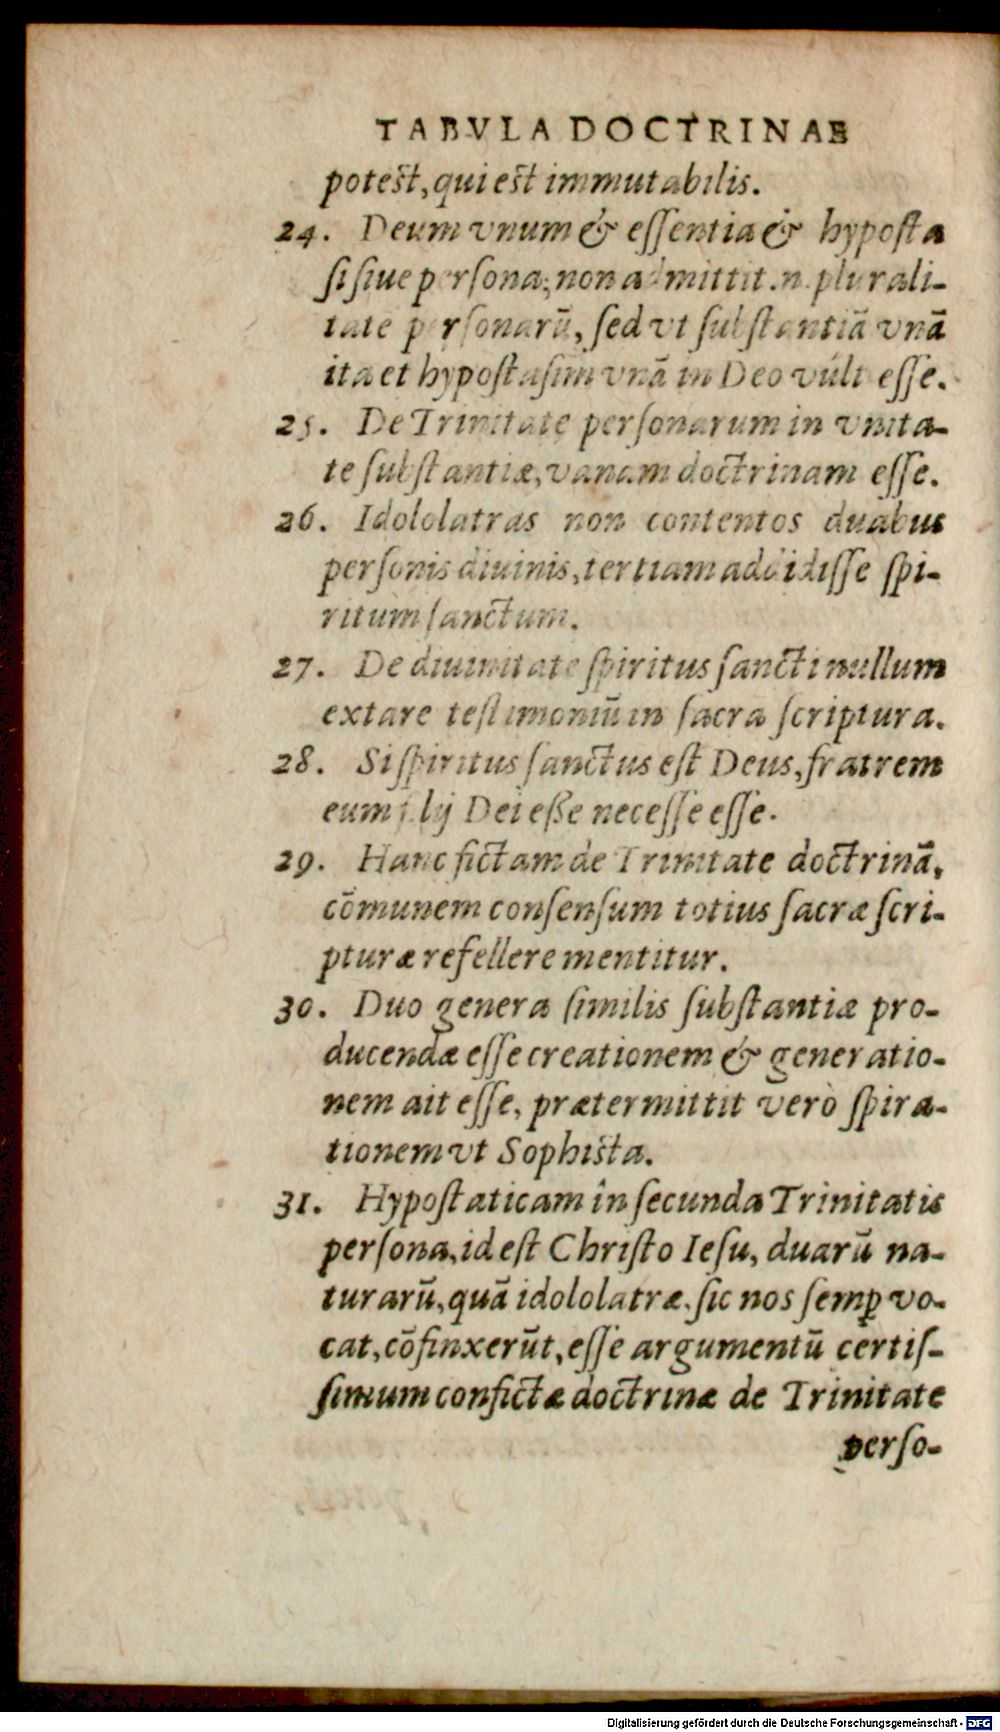 TABVLA DOCTRINAE
potest, qui est immutabilis.
24. Deum vnum & eſſentia & hypoſta
ſi ſiue perſona, non admittit .n. plurali-
tatē perſonarū, ſed vt ſubſtantiā vnā
ita et hypoſtaſim vnā in Deo vult eſſe.
25. De Trinitate perſonarum in vnita-
te ſubſtantiæ, vanam doctrinam eſſe.
26. Idololatras non contentos duabus
perſonis diuinis, tertiam addidiſſe ſpi-
ritum ſanctum.
27. De diuinitate ſpiritus ſancti nullum
extare teſtimoniū in ſacra ſcriptura.
28. Si ſpiritus ſanctus eſt Deus, fratrem
eum filij Dei eße neceſſe eſſe.
29. Hanc fictam de Trinitate doctrinā,
cōmunem conſenſum totius ſacræ ſcri-
pturæ refellere mentitur.
30. Duo genera ſimilis ſubſtantiæ pro-
ducendæ eſſe creationem & generatio-
nem ait eſſe, prætermittit verò ſpira-
tionem vt Sophiſta.
31. Hypoſtaticam in ſecunda Trinitatis
perſona, id eſt Chriſto Ieſu, duarū na-
turarū, quā idololatræ, ſic nos ſemꝑ vo-
cat, cōfinxerūt, eſſe argumentū certiſ-
ſimum confictæ doctrinæ de Trinitate
perſo-
Digitalisierung gefördert durch die Deutsche Forschungsgemeinschaft - DFG